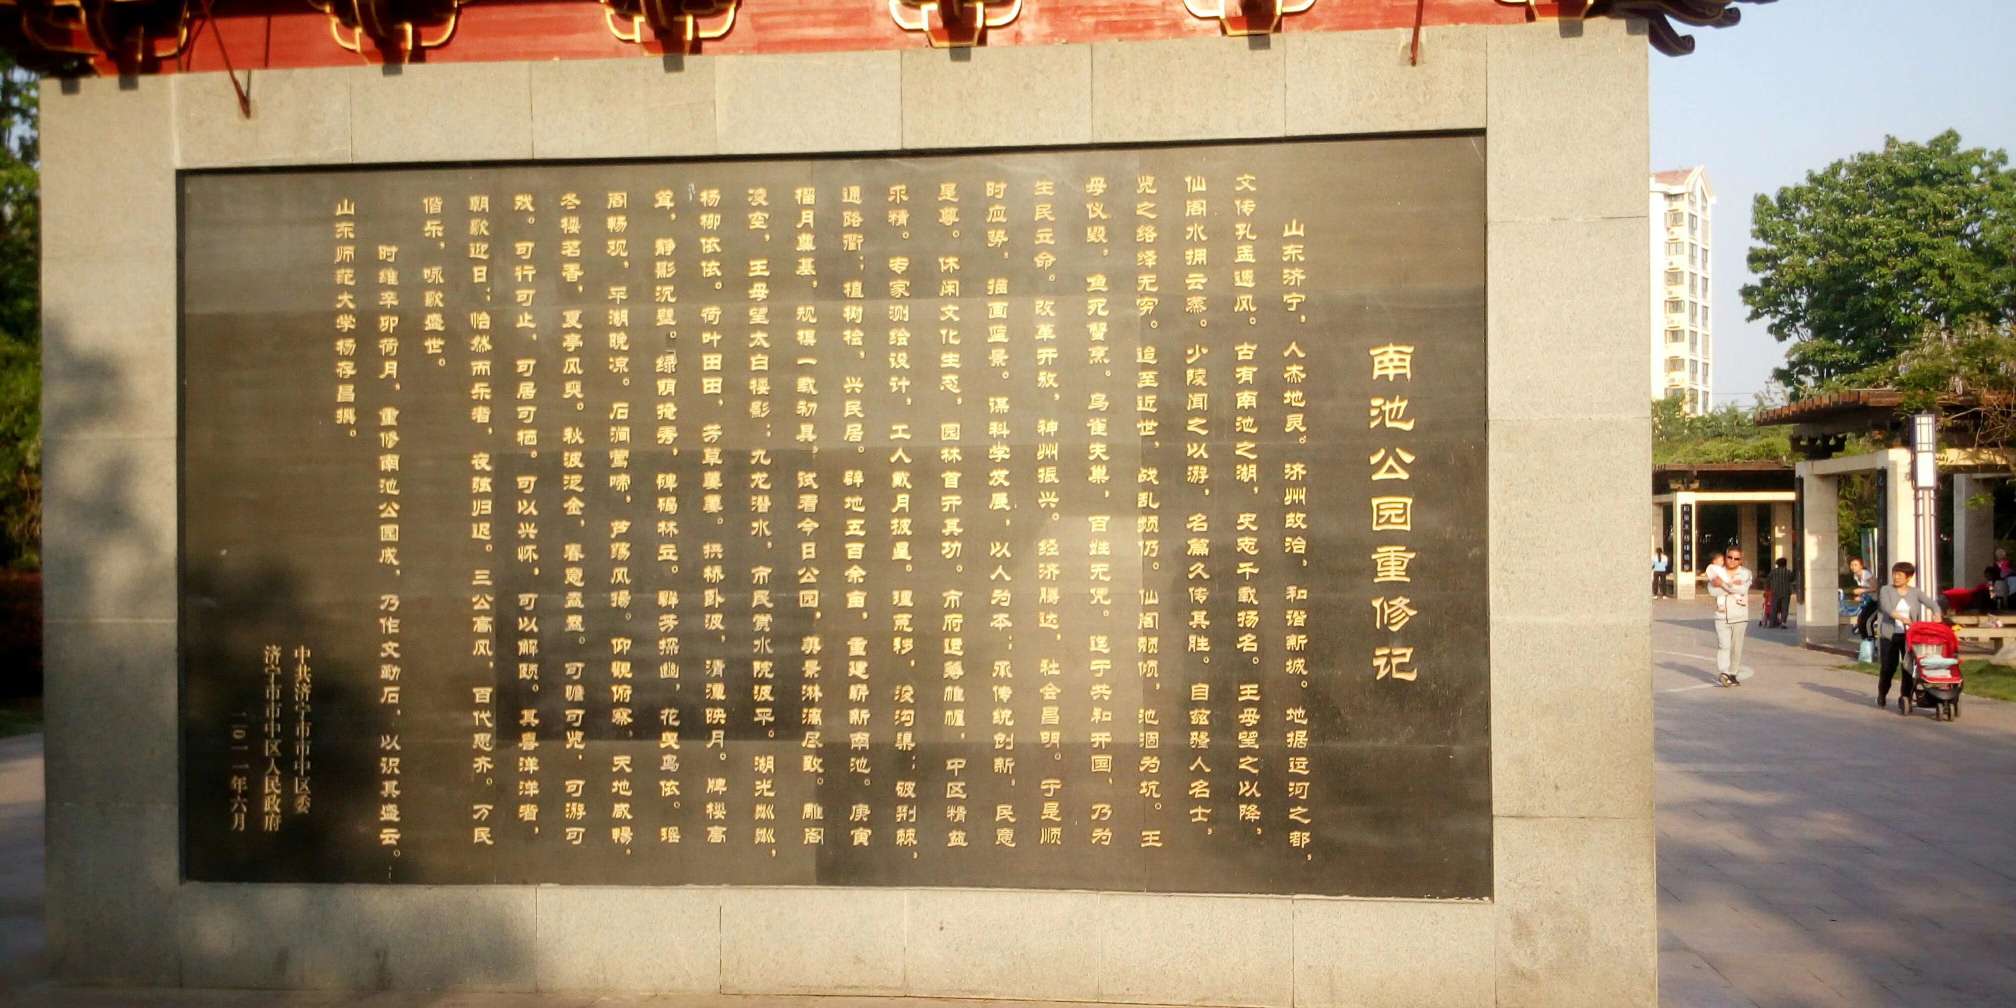 南池公园重修记
山东济宁，人杰地灵。济州故治，和谐新城。地据运河之都，
文传孔孟遗风。古有南池之湖，史志千载扬名。王母望之以降，
仙阁水拥云蒸。少陵闻之以游，名篇久传其胜。自兹骚人名士，
览之络绎无穷。迨至近世，战乱频仍。仙阁颓倾，池涸为坑。王
母仪毁，鱼死蟹烹。鸟雀失巢，百姓无凭。迄于共和开国，乃为
生民立命。改革开放，神州振兴。经济腾达，社会昌明。于是顺
时应势，描画蓝景。谋科学发展，以人为本；承传统创新，民意
是尊。休闲文化生态，园林首开其功。市府运筹帷幄，中区精益
求精。专家测绘设计，工人戴月披星。理荒秽，浚沟渠；破荆棘，
通路衢；植树桧，兴民居。辟地五百余亩，重建崭新南池。庚寅
榴月奠基，规模一载初具，试看今日公园，美景淋漓尽致。雕阁
凌空，王母望太白楼影；九龙潜水，市民赏水院波平。湖光粼粼，
杨柳依依。荷叶田田，芳草萋萋。拱桥卧波，清漪映月。牌楼高
耸，静影沉璧。绿荫掩秀，碑碣林立。群芳探幽，花曳鸟依。瑶
阁畅观，平湖晚凉。石涧莺啼，芦荡风扬。仰观俯察，天地咸畅。
冬楼茗香，夏亭风爽。秋波泛金，春意盎盎。可瞻可览，可游可
戏。可行可止，可居可栖。可以兴怀，可以解颐。其喜洋洋者，
朝歌迎日；怡然而乐者，夜弦归迟。三公高风，百代思齐。万民
偕乐，咏歌盛世。
时维辛卯荷月，重修南池公园成，乃作文勒石，以识其盛云。
山东师范大学杨存昌撰。
中共济宁市市中区委
济宁市市中区人民政府
二〇一一年六月